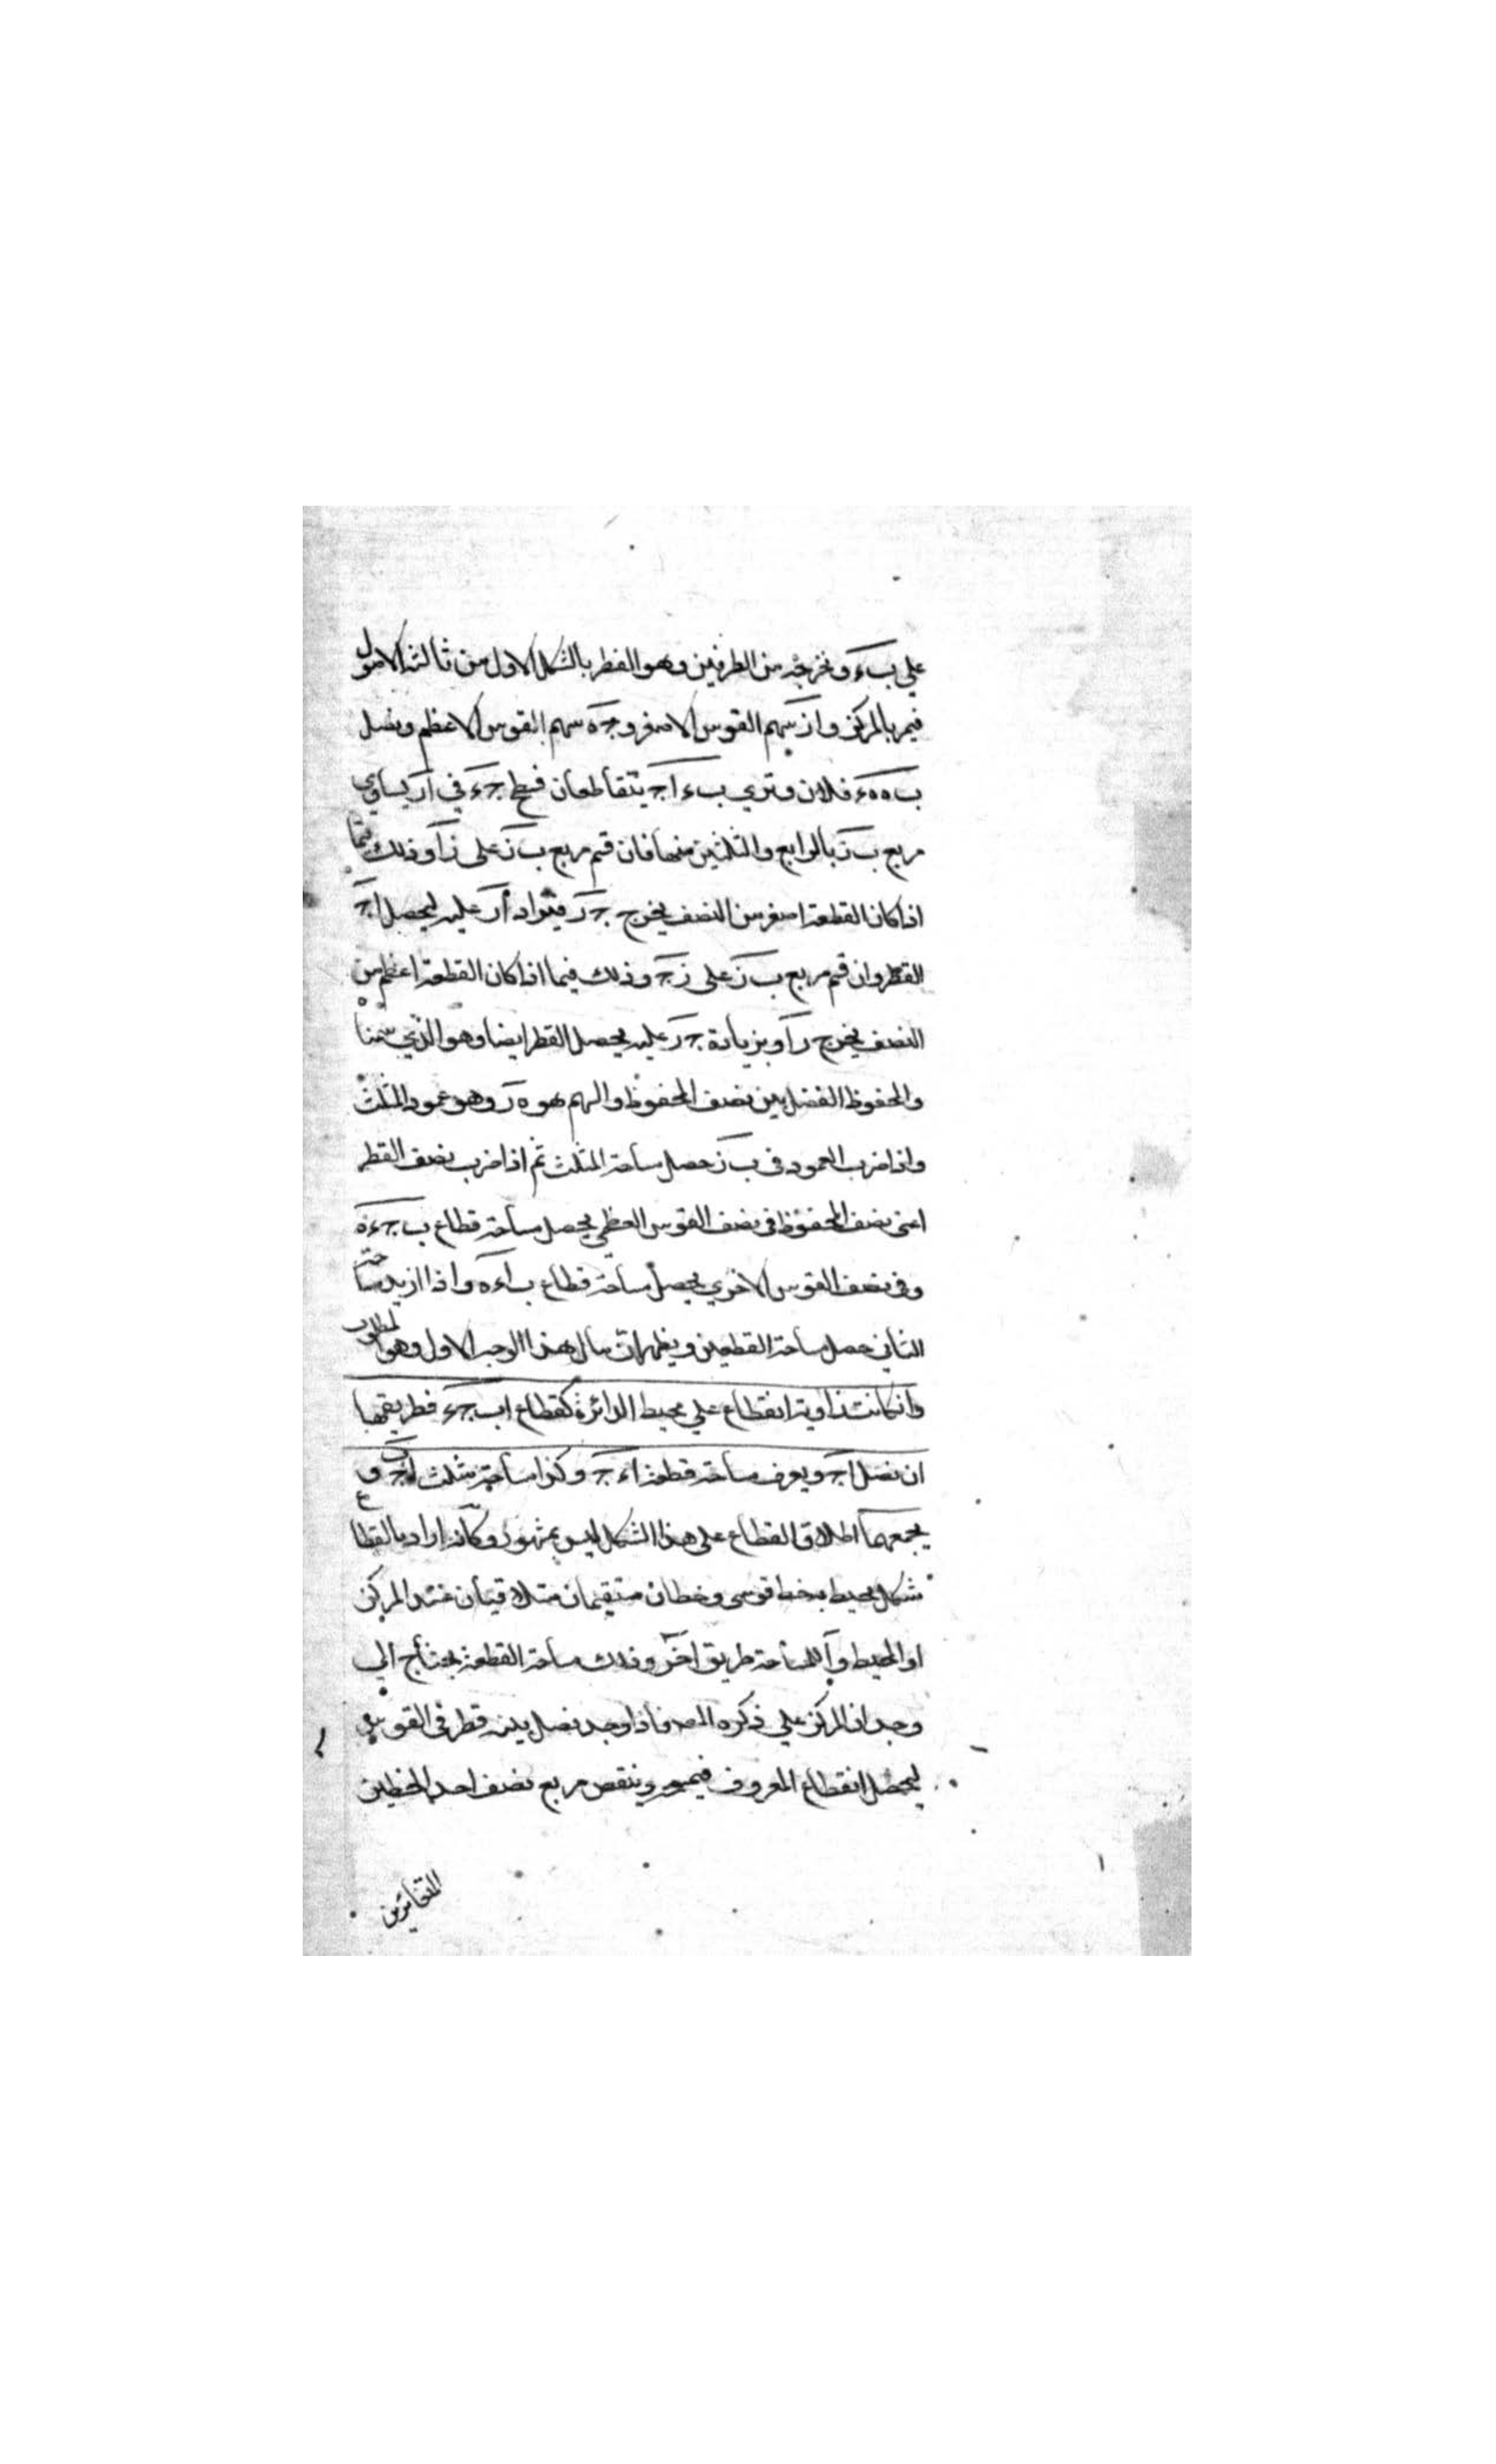 على ب ء و نخرجه من الطرفين وهو القطر بالشكل الاول من ثالثة الاصول
فيمر بالمركز و از سهم القوس الاصغر و جه سهم القوس الاعظم و نصل
ب ه ه ء فلان وتري ب ء اج يتقاطعان فسطح جء في ار يساوي
مربع ب ز بالرابع والثلثين منها فان قسم مربع ب ز على زا وذلك فيما
اذا كان القطعة اصغر من النصف يخرج جر فيزاد ار عليه ليحصل اج
القطر وان قسم مربع ب ز على زج وذلك فيما اذا كان القطعة اعظم من
النصف يخرج را وبزيادة جر عليه يحصل القطر ايضا وهو الذي سمينا
والمحفوظ الفضل بين نصف المحفوظ والسهم هو ه ر وهو عمود المثلث
واذا ضرب العمود في ب ز حصل مساحة المثلث ثم اذا ضرب نصف القطر
اعنى نصف المحفوظ في نصف القوس العظمي يحصل مساحة قطاع ب جءه
وفي نصف القوس الاخري يحصل مساحة قطاع ب اءه و اذا ازيد مساحة
الثاني حصل مساحة القطعتين ويظهر ان مآل هذا الوجه الاول وهو المطلوب
وانكانت زاوية القطاع على محيط الدائرة كقطاع اب جء فطريقها
ان نصل اج ويعرف مساحة قطعة اءج وكذا مساحة مثلث اب ج و
يجمعهما اطلاق القطاع على هذا الشكل ليس بمشهور وكأنه اراد بالقطاع
شكل يحيط به خط قوسي وخطان مستقيمان متلاقيان عند المركز
او المحيط و المساحة طريق اخر وذلك مساحة القطعة يحتاج الى
وجدان المركز على ذكره المص فاذا وجد نصل بينه قطر في القوس
ليحصل القطاع المعروف فيمسح وينقص مربع نصف احد الخطين